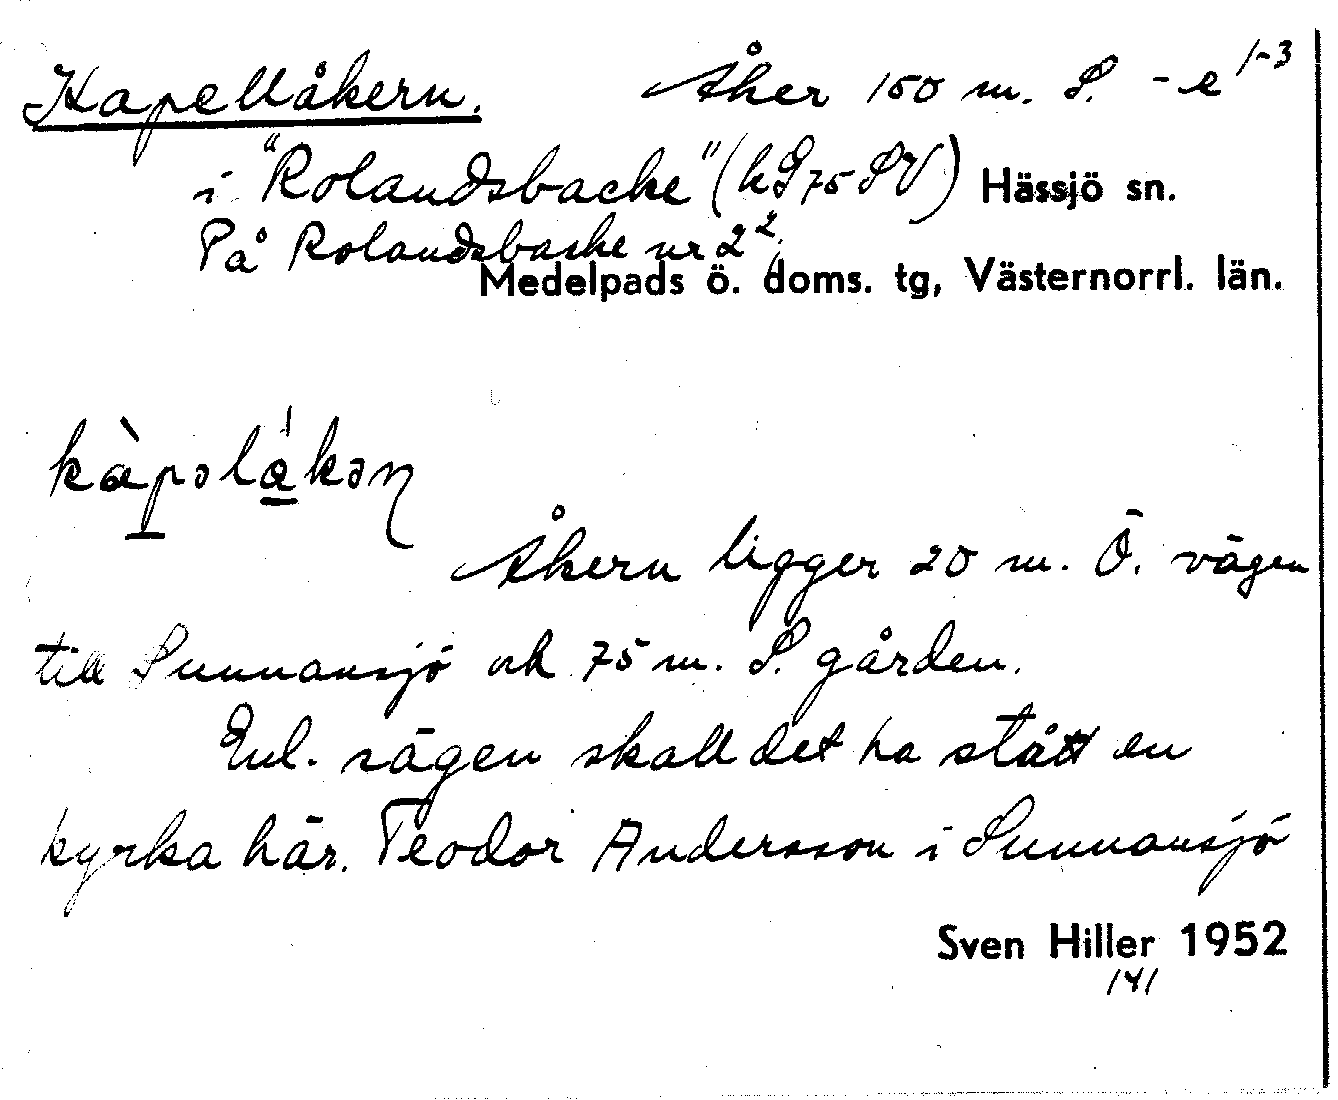 Kapellåkern. Åker 150 m. S. -e 1-3
i "Rolandsbacke" (kG75SV) Hässjö sn.
På Rolandsbacke nr 2²,
Medelpads ö. doms. tg, Västernorrl. län.
kàpəlåkəɳ
Åkern ligger 20 m. Ö. vägen
till Sunnansjö ok 75 m. S. gården.
Enl. sägen skall det ha stått en
kyrka här. Teodor Andersson i Sunnansjö
Sven Hiller 1952
141